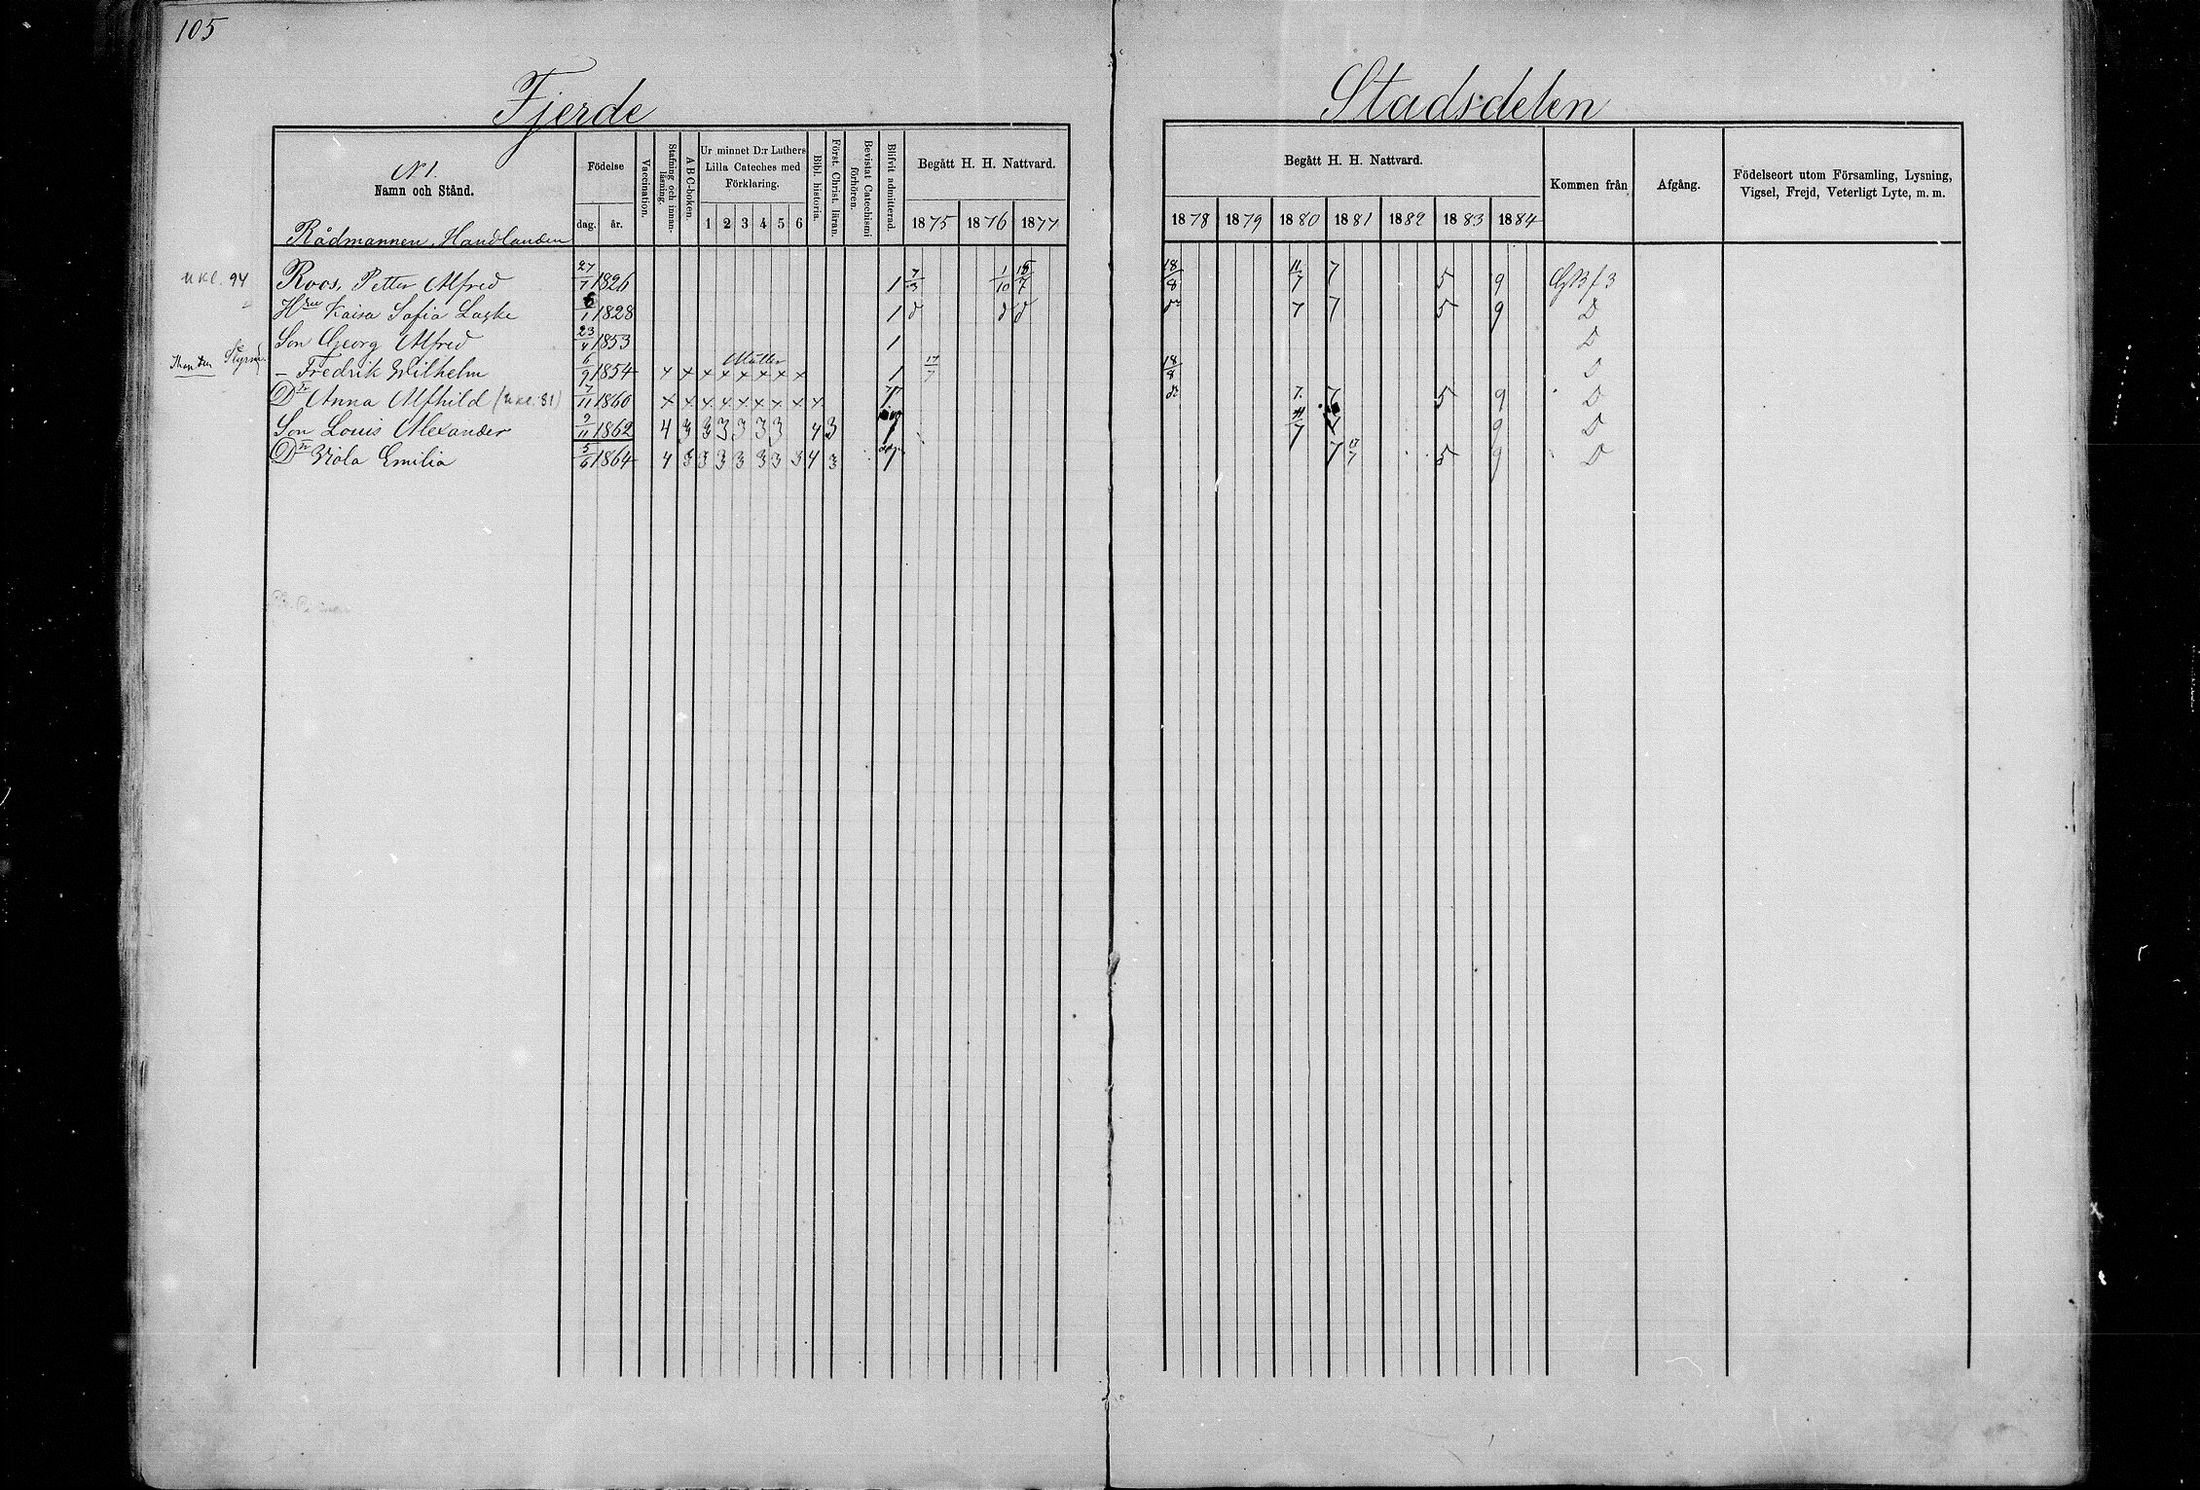 105
Fjerde Stadsdelen
N 1.
Namn och Stånd.
Födelse
dag. år.
Vaccination.
Stafning och innanläsning.
A B C-boken.
Ur minnet D:r Luthers
Lilla Cateches med
Förklaring.
1 2 3 4 5 6
Bibl. historia.
Först. Christ. läran.
Bevistat Catechismi förhören.
Blifvit admitterad.
Begått H. H. Nattvard.
1875 1876 1877
Begått H. H. Nattvard.
1878 1879 1880 1881 1882 1883 1884
Kommen från
Afgång.
Födelseort utom Församling, Lysning,
Vigsel, Frejd, Veterligt Lyte, m. m.
Rådmannen, Handlanden
Roos, Petter Alfred 27/7 1826 1 7/3 1/10 15/7 18/8 11/7 7 5 9
Kaisa Sofia 1828 1 d d d 7 7 5 9 D
Son Georg Alfred 23/4 1853 1 D
– Fredrik Wilhelm 6/9 1854 x x x x x x x x 1 17/7 18/8 D
Dr Anna Alfhild 7/11 1860 x x x x x x x x x 7 7 5 9 D
Son Louis Alexander 9/11 1862 4 3 3 3 3 3 3 4 3 11/7 9 D
Dr Viola Emilia 5/6 1864 4 3 3 3 3 3 3 3 4 3 7 17/7 5 9 D